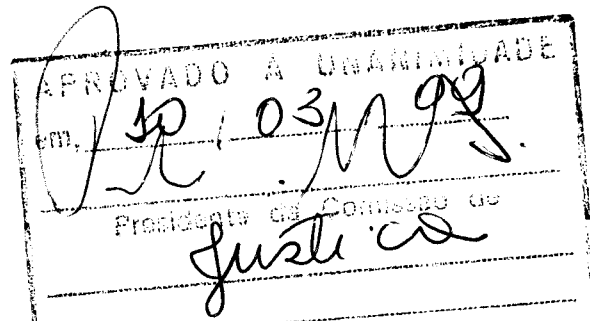 APROVADO A UNANIMIDADE
em, 10 / 03 / 99
Presidente da Comissão de
Justiça